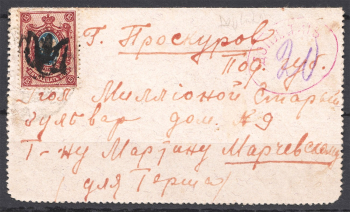 Г. Проскуров
Под. губ.
Угол Миллионой Старый
бульвар дом. №9
Г-ну Мартину Марчевскому
для Герша